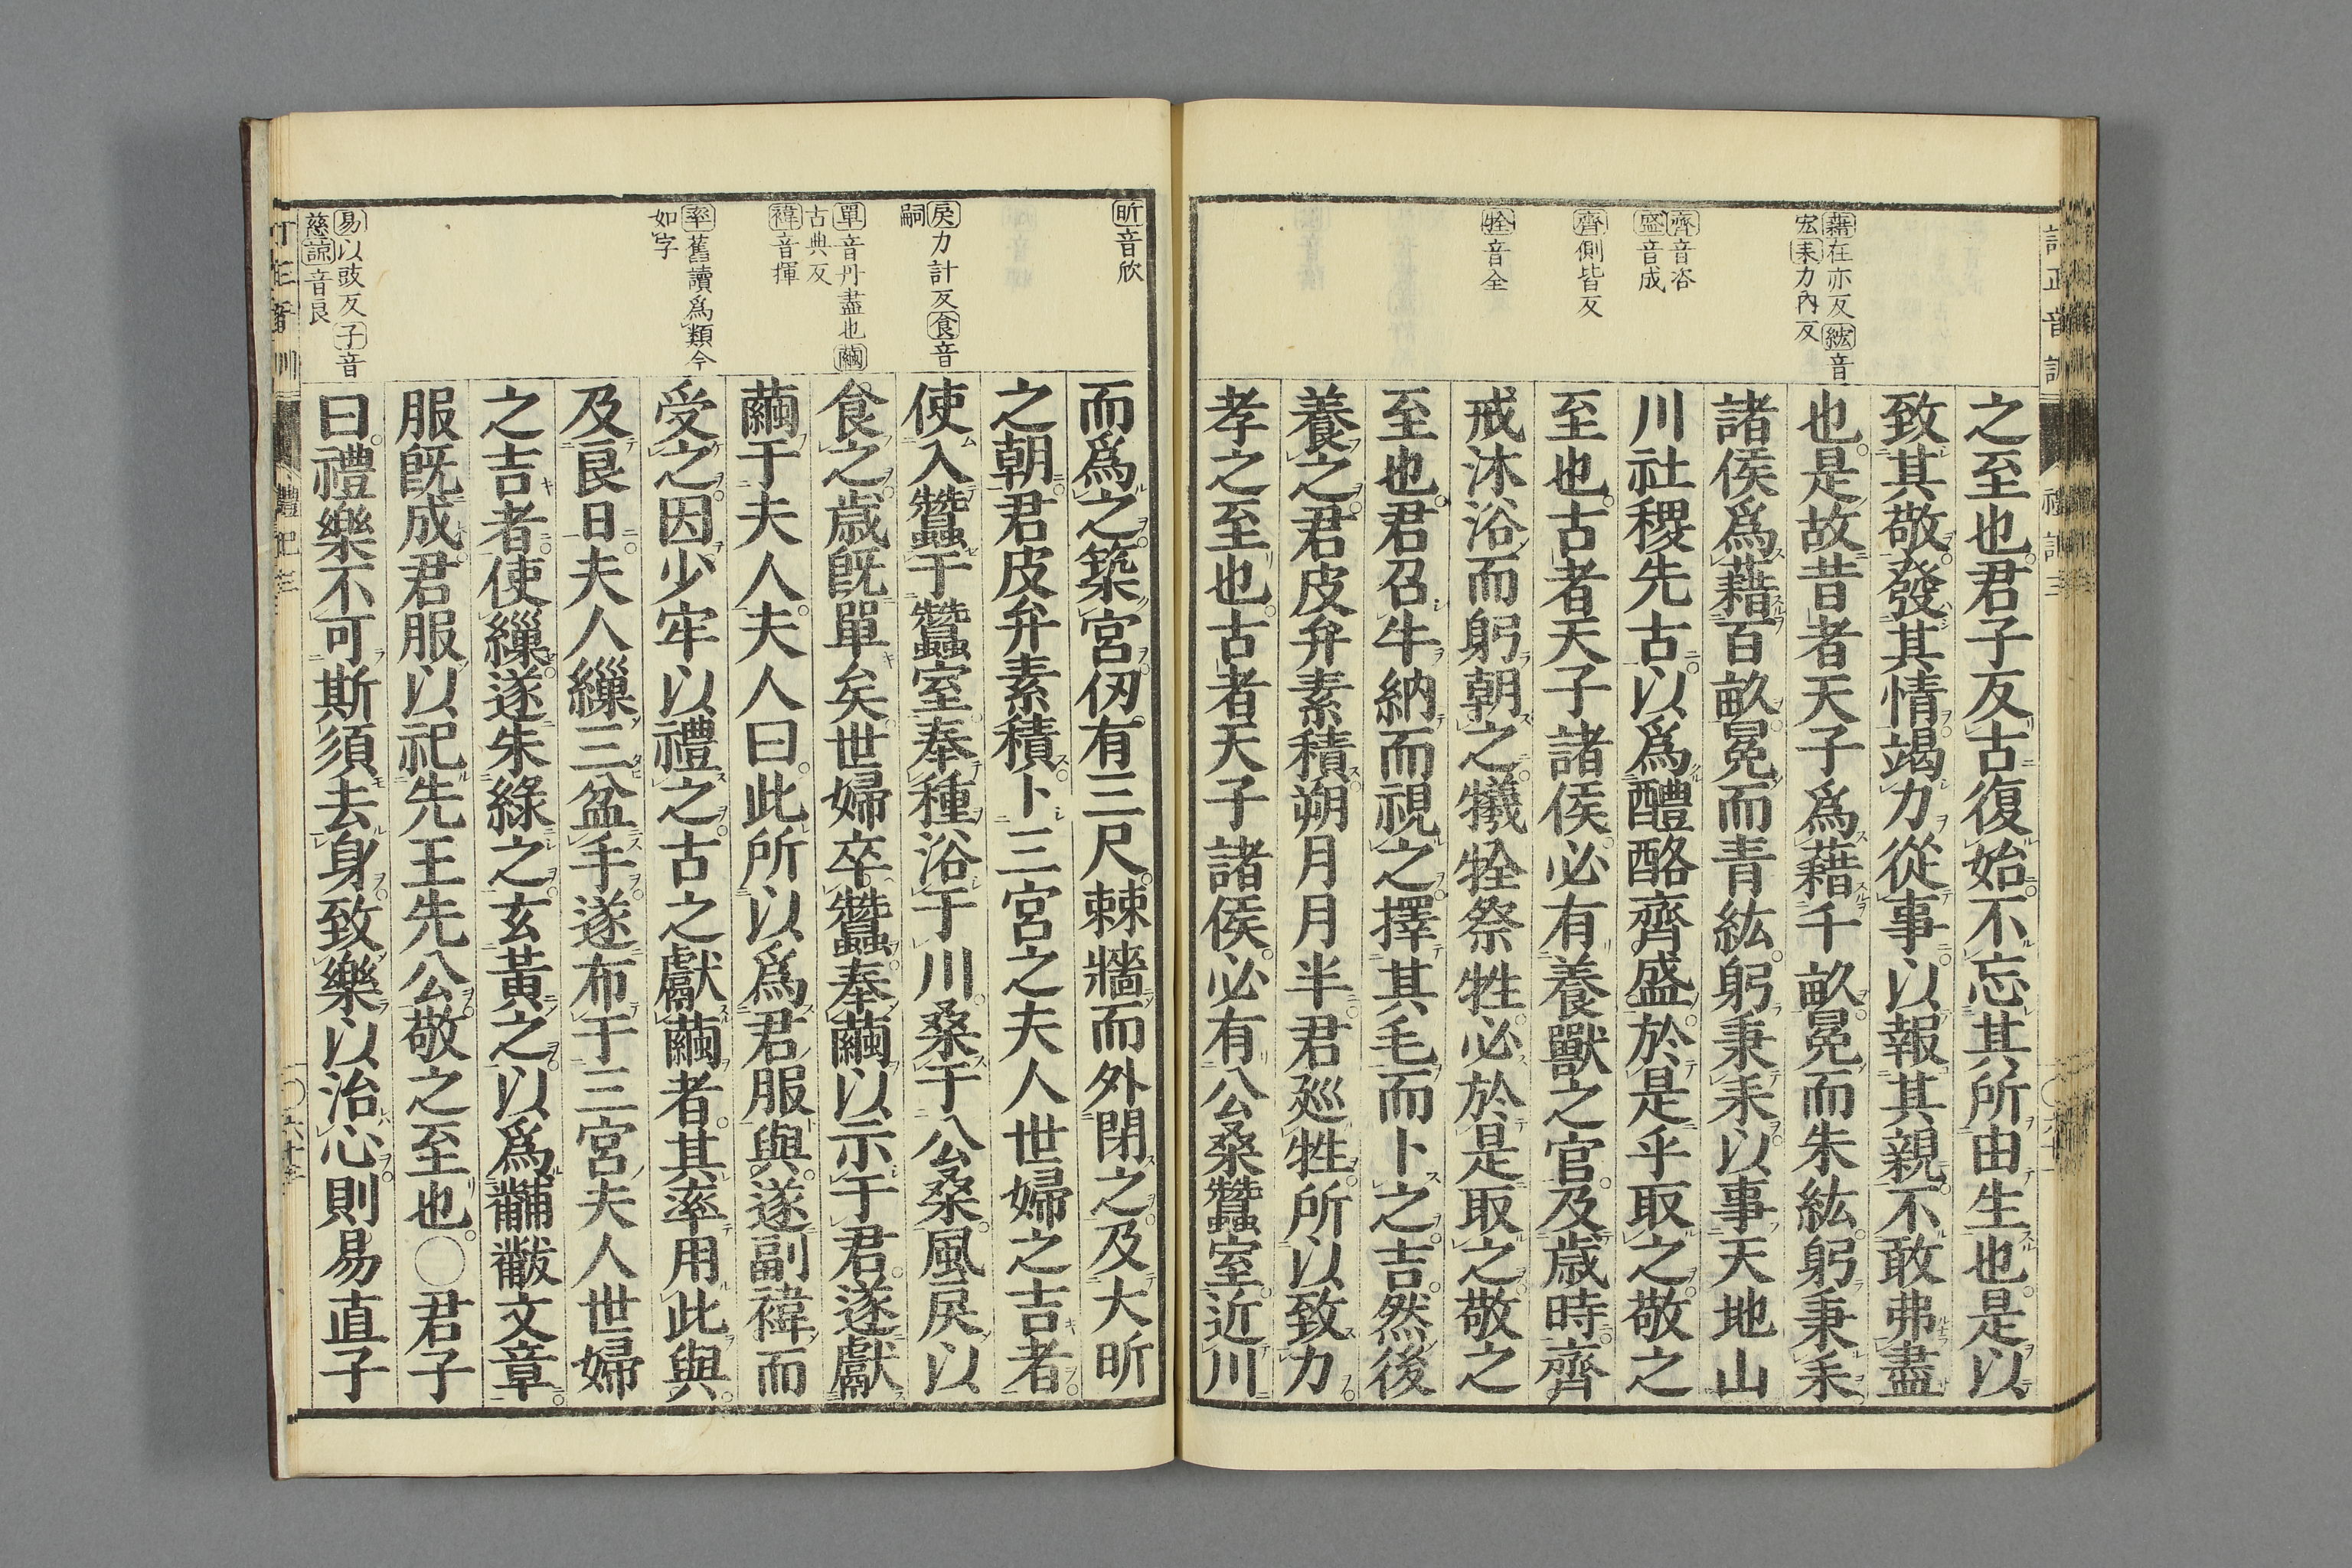 藉在亦反紘音
宏耒力內反
齊音咨
盛音成
齊側皆反
牷音全
之至也君子反古復始不忘其所由生也是以
致其敬發其情竭力從事以報其親不敢弗盡
也是故昔者天子爲藉千畝冕而朱紘躬秉耒
諸侯爲藉百畝冕而青紘躬秉耒以事天地山
川社稷先古以爲醴酪齊盛於是乎取之敬之
至也古者天子諸侯必有養獸之官及歲時齊
戒沐浴而躬朝之犧牷祭牲必於是取之敬之
至也君召牛納而視之擇其毛而卜之吉然後
養之君皮弁素積朔月月半君巡牲所以致力
孝之至也古者天子諸侯必有公桑蠶室近川
昕音欣
戾力計反食音
嗣
單音丹盡也繭
古典反
褘音揮
率舊讀爲類今
如字
易以豉反子音
慈諒音良
而爲之築宮仞有三尺棘牆而外閉之及大昕
之朝君皮弁素積卜三宮之夫人世婦之吉者
使入蠶于蠶室奉種浴于川桑于公桑風戾以
食之歲旣單矣世婦卒蠶奉繭以示于君遂獻
繭于夫人夫人曰此所以爲君服與遂副褘而
受之因少牢以禮之古之獻繭者其率用此與
及良日夫人繅三盆手遂布于三宮夫人世婦
之吉者使繅遂朱綠之玄黃之以爲黼黻文章
服旣成君服以祀先王先公敬之至也○君子
曰禮樂不可斯須去身致樂以治心則易直子